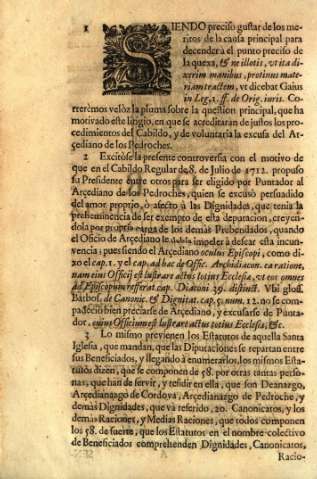 1 SIENDO preciso gustar de los me-
ritos de la causa principal para
decender à el punto preciso de
la quexa, & ne illotis, vt ita di-
xerim manibus, protinus mate-
riam tractem, vt dicebat Gaius
in Leg. 1. ff. de Orig. iuris. Co-
rrerèmos velòz la pluma sobre la question principal, que ha
motivado este litigio, en que se acreditaràn de justos los pro-
cedimientos del Cabildo, y de voluntaria la excusa del Ar-
çediano de los Pedroches.
2 Excitòse la presente controversia con el motivo de
que en el Cabildo Regular de 8. de Julio de 1712. propuso
su Presidente entre otros para ser eligido por Puntador al
Arçediano de los Pedroches, quien se excusò persuadido
del amor proprio, ò afecto à las Dignidades, que tenia la
preheminencia de ser exempto de esta deputacion, creyen-
dola por propria carga de los demàs Prebendados, quando
el Oficio de Arçediano le debia impeler à descar esta incun-
vencia; pues siendo el Arçediano oculus Episcopi, como di-
xo el cap. 1. y el cap. ad hæc de Offic. Archidiacon. ea ratione,
nam eius Officij est lustrare actus totius Ecclesiæ, vt eos omnes
ad Episcopum referat cap. Diaconi 29. distinct. Vbi gloss.
Barbos. de Canonic. & Dignitat. cap. 5. num. 12. no se com-
padeciò bien preciarse de Arçediano, y excusarse de Punta-
dor, cuius Officium est lustrare actus totius Ecclesiæ, &c.
3 Lo mismo previenen los Estatutos de aquella Santa
Iglesia, que mandan, que las Diputaciones se repartan entre
sus Beneficiados, y llegando à enumerarlos, los mismos Esta-
tutos dizen, que se componen de 58. por otras tantas perso-
nas, que han de servir, y residir en ella, que son Deanazgo,
Arçedianazgo de Cordova, Arçedianazgo de Pedroche, y
demàs Dignidades, que và referido, 20. Canonicatos, y los
demàs Raciones, y Medias Raciones, que todos componen
los 58. de suerte, que los Estatutos en el nombre colectivo
de Beneficiados comprehenden Dignidades, Canonicatos,
A Racio-